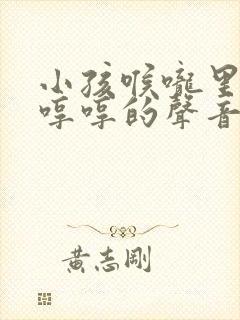 小孩喉嚨里
哼哼的聲音
黃志剛